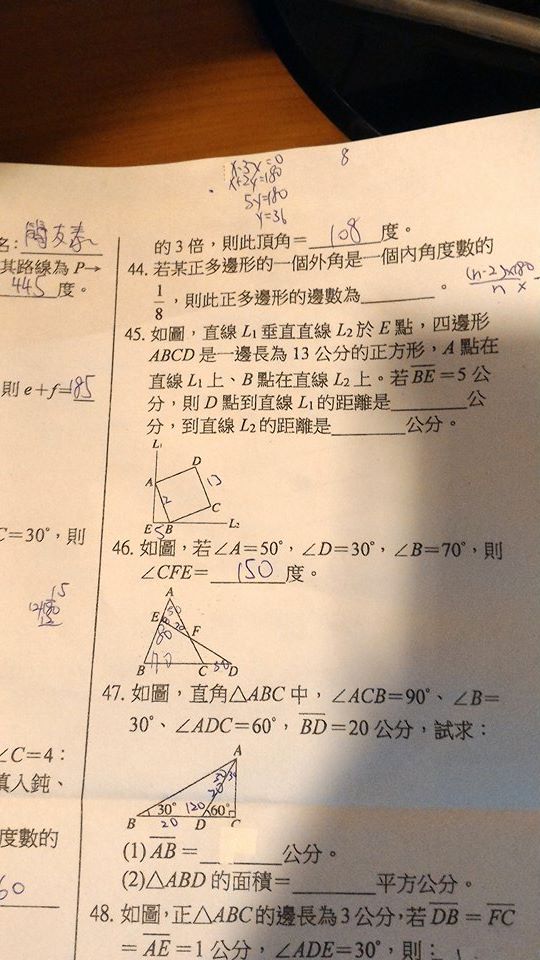 x-3y=0
x+2y=180
5y=180
y=36
8
名:簡友泰
其路線為 P→
445 度。
則 e+f=185
C=30°,則
15
∠C=4:
填入鈍、
度數的
60
的 3 倍,則此頂角= 108 度。
44. 若某正多邊形的一個外角是一個內角度數的
1/8,則此正多邊形的邊數為______。
(n-2)x180
n x
45. 如圖,直線 L1 垂直直線 L2 於 E 點,四邊形
ABCD 是一邊長為 13 公分的正方形,A 點在
直線 L1 上、B 點在直線 L2 上。若 BE=5 公
分,則 D 點到直線 L1 的距離是______公
分,到直線 L2 的距離是______公分。
L1
D
A
13
12
C
E 5 B L2
46. 如圖,若∠A=50°,∠D=30°,∠B=70°,則
∠CFE= 150 度。
A
50
E
20
80
F
B 70 C 30 D
47. 如圖,直角△ABC 中,∠ACB=90°、∠B=
30°、∠ADC=60°,BD=20 公分,試求:
A
30 30
20
30° 120 60°
B 20 D C
(1) AB=______公分。
(2)△ABD 的面積=______平方公分。
48. 如圖,正△ABC 的邊長為 3 公分,若 DB=FC
=AE=1 公分,∠ADE=30°,則: